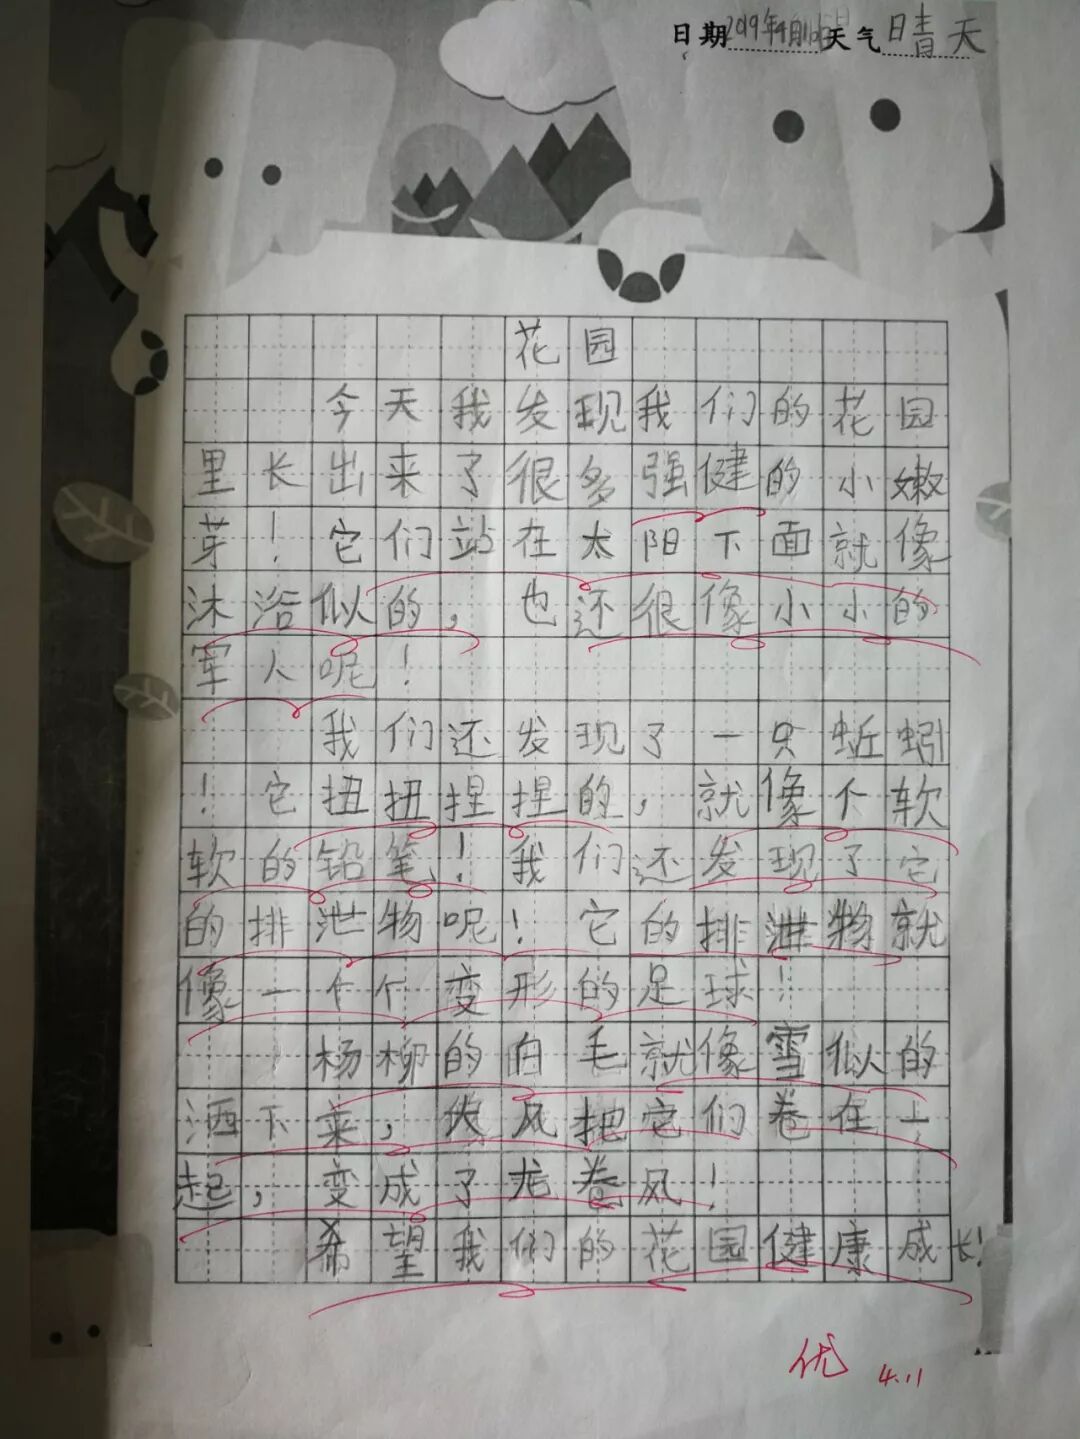 日期2019年4月10日天气晴天
花园
今天我发现我们的花园
里长出来了很多强健的小嫩
芽！它们站在太阳下面就像
沐浴似的，也还很像小小的
军人呢！
我们还发现了一只蚯蚓
！它扭扭捏捏的，就像个软
软的铅笔！我们还发现了它
的排泄物呢！它的排泄物就
像一个个变形的足球！
杨柳的白毛就像雪似的
洒下来，大风把它们卷在一
起，变成了龙卷风！
希望我们的花园健康成长！
优
4.11